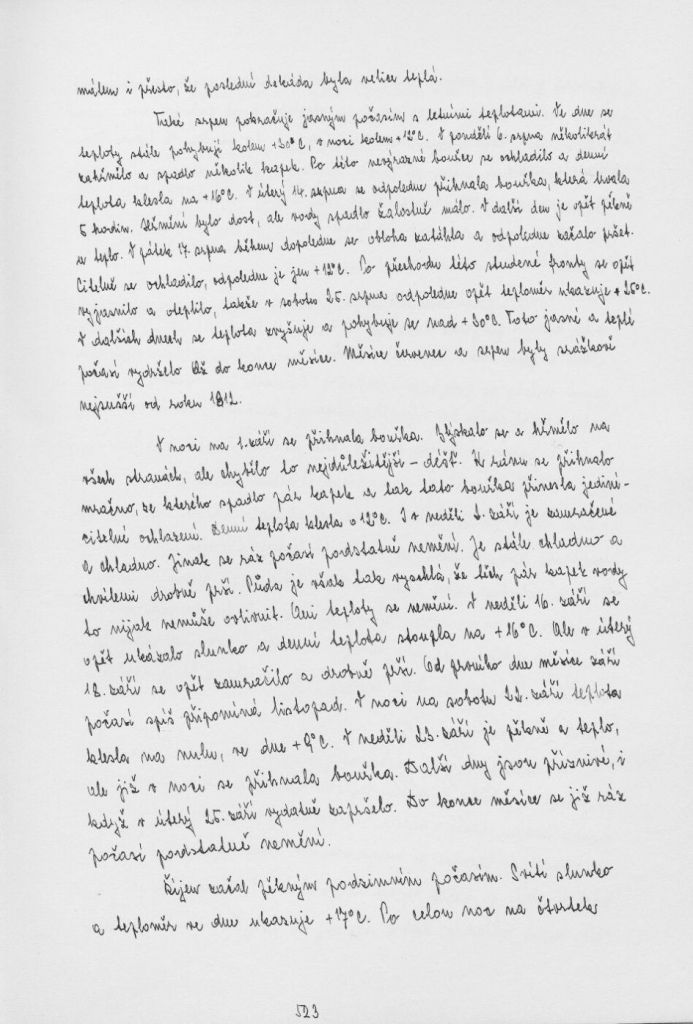 málem i přesto, že poslední dekáda byla velice teplá.
Také srpen pokračuje jasným počasím s letními teplotami. Ve dne se
teploty stále pohybují kolem +30°C, v noci kolem +12°C. V pondělí 6. srpna několikrát
zahřmělo a spadlo několik kapek. Po této nevýrazné bouřce se ochladilo a denní
teplota klesla na +16°C. V úterý 14. srpna se odpoledne přihnala bouřka, která trvala
5 hodin. Hřmění bylo dost, ale vody spadlo žalostně málo. V další den je opět pěkně
a teplo. V pátek 17. srpna během dopoledne se obloha zatáhla a odpoledne začalo pršet.
Citelně se ochladilo, odpoledne je jen +12°C. Po přechodu této studené fronty se opět
vyjasnilo a oteplilo, takže v sobotu 25. srpna odpoledne opět teploměr ukazuje +26°C.
V dalších dnech se teplota zvyšuje a pohybuje se nad +30°C. Toto jasné a teplé
počasí vydrželo až do konce měsíce. Měsíce červenec a srpen byly srážkově
nejsušší od roku 1812.
V noci na 1. září se přihnala bouřka. Blýskalo se a hřmělo na
všech stranách, ale chybělo to nejdůležitější – déšť. K ránu se přihnalo
mračno, ze kterého spadlo pár kapek a tak tato bouřka přinesla jedině –
citelné ochlazení. Denní teplota klesla o 12°C. I v neděli 2. září je zamračené
a chladno. Jinak se ráz počasí podstatně nemění. Je stále chladno a
chvílemi drobně prší. Půda je však tak vyschlá, že těch pár kapek vody
to nijak nemůže ovlivnit. Ani teploty se nemění. V neděli 16. září se
opět ukázalo slunko a denní teplota stoupla na +16°C. Ale v úterý
18. září se opět zamračilo a drobně prší. Od prvního dne měsíce září
počasí spíš připomíná listopad. V noci na sobotu 22. září teplota
klesla na nulu, ve dne +9°C. V neděli 23. září je pěkně a teplo,
ale již v noci se přihnala bouřka. Další dny jsou příznivé, i
když v úterý 25. září vydatně zapršelo. Do konce měsíce se již ráz
počasí podstatně nemění.
Říjen začal pěkným podzimním počasím. Svítí slunko
a teploměr ve dne ukazuje +17°C. Po celou noc na čtvrtek
523